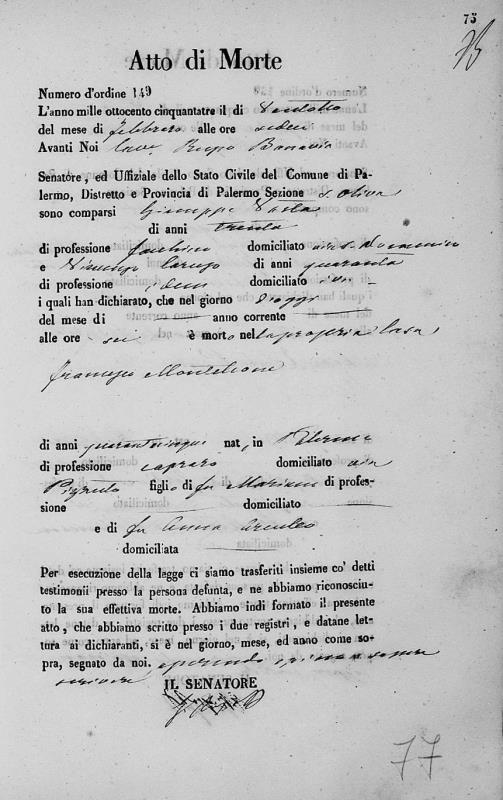 75
Atto di Morte
Numero d'ordine 149
L'anno mille ottocento cinquantatre il di Ventotto
del mese di febbraro alle ore sedeci
Avanti Noi Cav.
Senatore, ed Uffiziale dello Stato Civile del Comune di Pa-
lermo, Distretto e Provincia di Palermo Sezione S. Oliva
sono comparsi Giuseppe
di anni trenta
di professione domiciliato
e di anni quaranta
di professione idem domiciliato ivi
i quali han dichiarato, che nel giorno d'oggi
del mese di — anno corrente —
alle ore sei è morto nella propria casa
Francesco Monteleone
di anni quarantacinque nato in Palermo
di professione capraro domiciliato
figlio di fu Mariano di profes-
sione — domiciliato —
e di fu Anna
domiciliata —
Per esecuzione della legge ci siamo trasferiti insieme co' detti
testimonii presso la persona defunta, e ne abbiamo riconosciu-
to la sua effettiva morte. Abbiamo indi formato il presente
atto, che abbiamo scritto presso i due registri, e datane let-
tura ai dichiaranti, si è nel giorno, mese, ed anno come so-
pra, segnato da noi.
scrivere
IL SENATORE
77